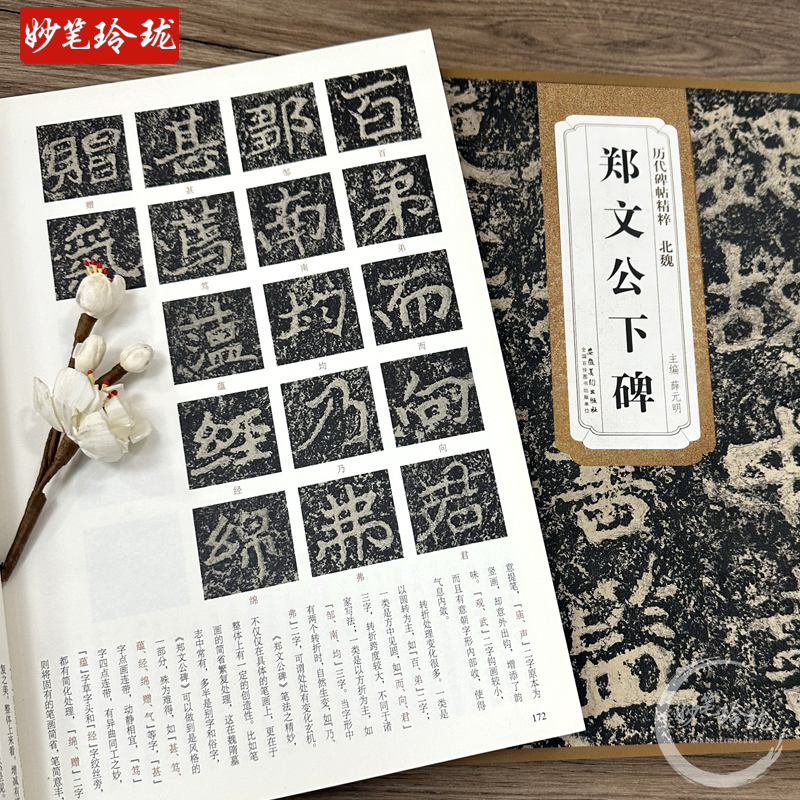 妙笔玲珑
百
邹
甚
赠
弟
南
笃
而
均
蕴
向
乃
经
君
弗
绵
意提笔,「庙、声」二字原本为
竖画,却意外出钩,增添了韵
味。「观、武」二字钩画较小,
而且有意朝字形内部收,使得
气息内敛。
转折处理变化很多。一类是
以圆转为主,如「百、弟」二字;
一类是方中见圆,如「而、向、君」
三字,转折跨度较大,不同于诸
家写法;一类是以方折为主,如
「邹、南、均」三字。当字形中
有两个转折时,自然生变,如「乃、
弗」二字,可谓处处有变化玄机。
《郑文公碑》笔法之精妙,
不仅仅在具体的笔画上,更在于
整体上有一定的创造性。比如笔
画的简省繁复处理,这在魏隋墓
志中常有,多半是别字和俗字,
《郑文公碑》可以做到是风格的
一部分,殊为难得,如「甚、笃、
蕴、经、绵、赠、气」等字,「甚」
字点画连带,动静相宜,「笃」
字四点连带,有异曲同工之妙,
「蕴」字草字头和「经」字绞丝旁,
都有简化处理,「绵、赠」二字
则将固有的笔画简省,笔简意丰,
复之美。整体上来看,增减有
172
历代碑帖精粹 北魏
郑文公下碑
主编 薛元明
安徽美术出版社
全国百佳图书出版单位
妙笔玲珑